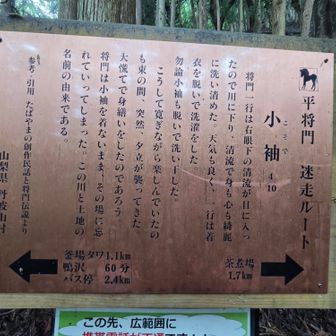 平将門 迷走ルート
小袖 4/10
こそで
将門一行は右眼下の清流が目に入っ
たので川に下り、清流で身も心も綺麗
に洗い清めた。天気も良く、一行は着
衣を脱いで洗濯をした。
勿論小袖も脱いで洗い干した。
こうして寛ぎながら楽しんでいたの
も束の間、突然、夕立が襲ってきた。
大慌てで身繕いをしたのであろう。
将門は小袖を着ないまま、その場に忘
れていってしまった。この川と土地の
名前の由来である。
参考・引用 たばやまの創作民話と将門伝説より
山梨県 丹波山村
茶煮場
1.7km
釜場タワ 1.1km
鴨沢 60分
バス停 2.4km
この先、広範囲に